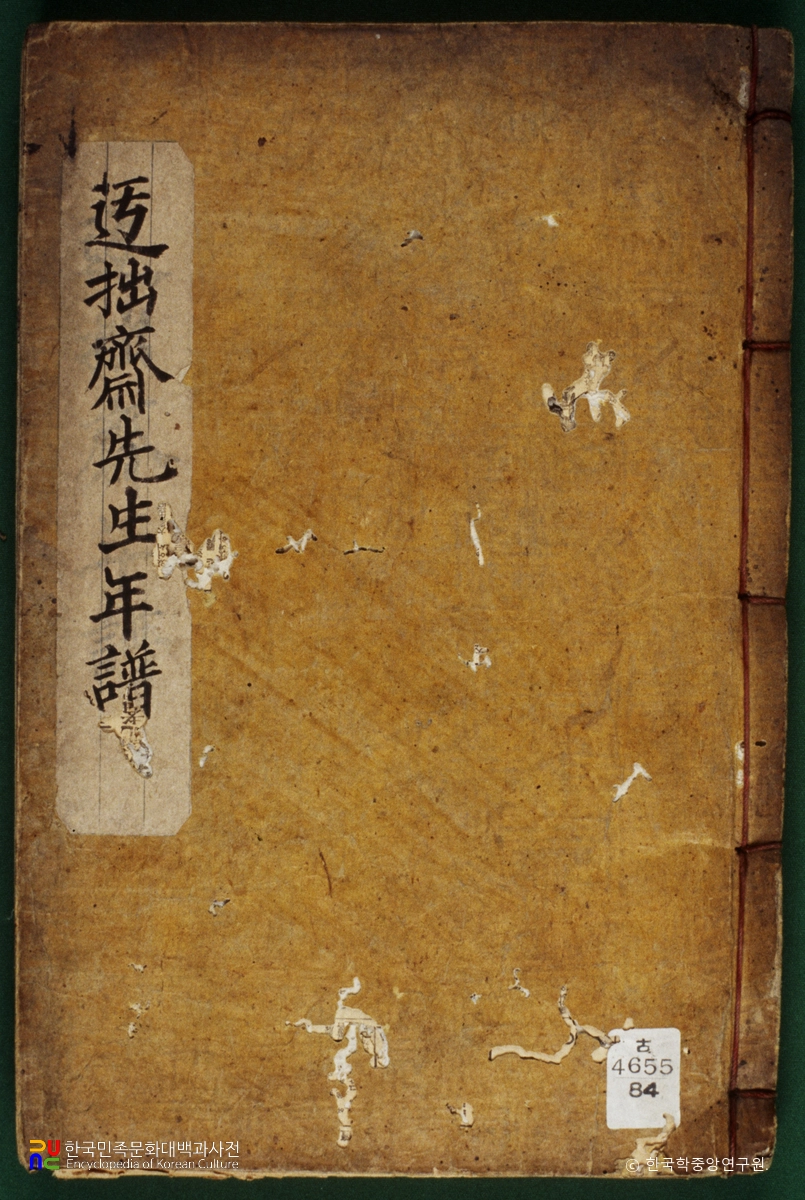 迃拙齋先生年譜
古
4655
84
한국민족문화대백과사전
Encyclopedia of Korean Culture
© 한국학중앙연구원